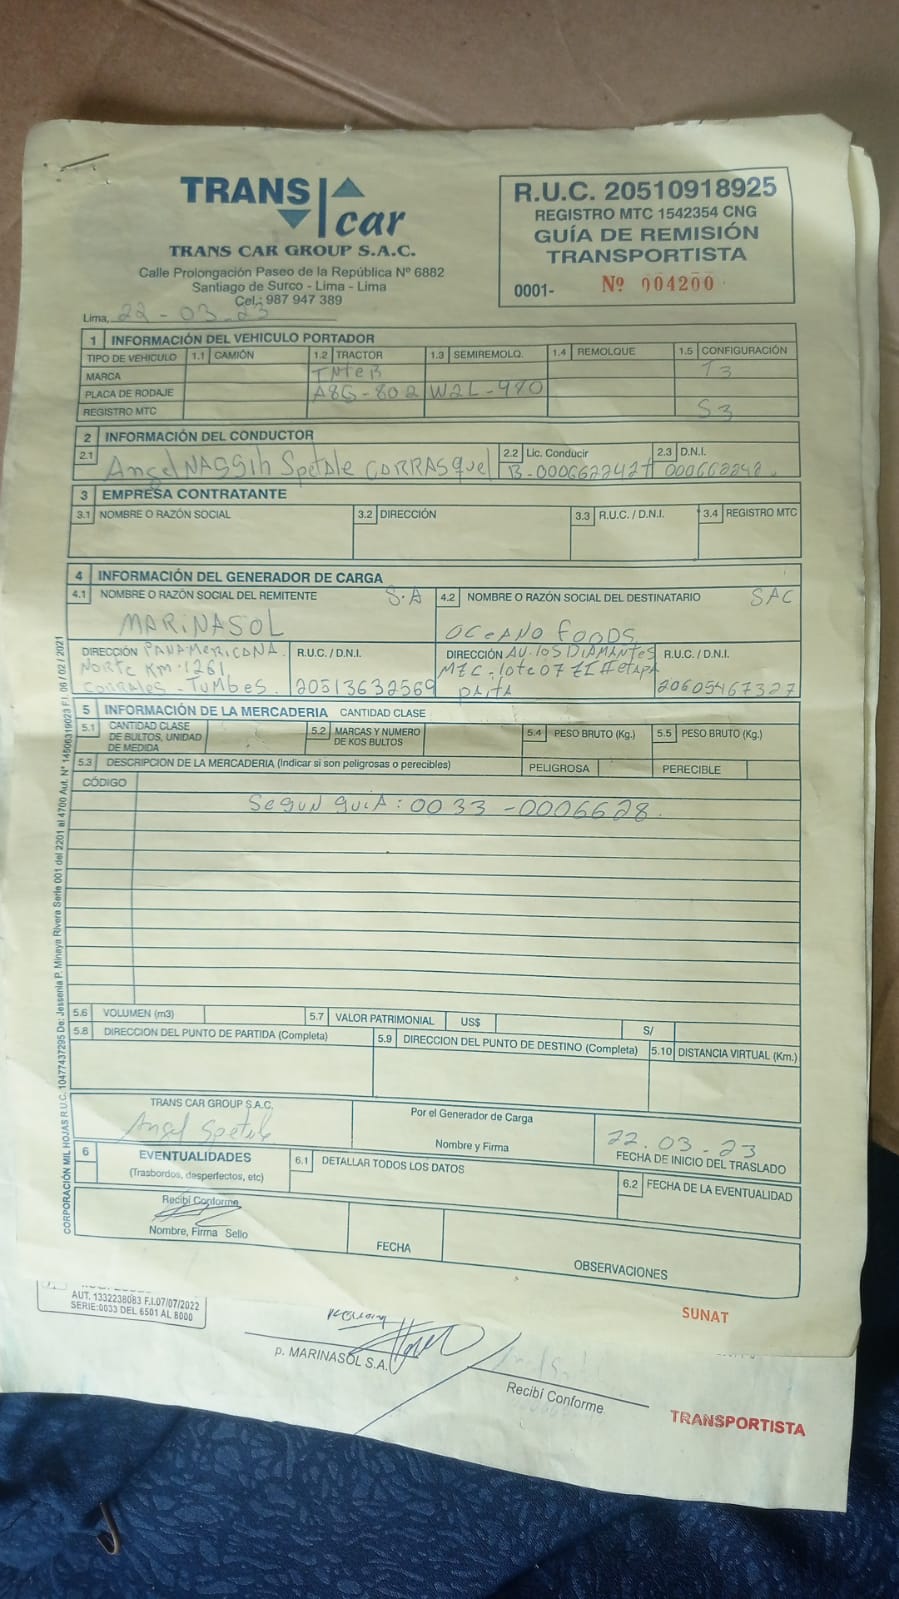 TRANS car
TRANS CAR GROUP S.A.C.
Calle Prolongación Paseo de la República Nº 6882
Santiago de Surco - Lima - Lima
Cel.: 987 947 389
R.U.C. 20510918925
REGISTRO MTC 1542354 CNG
GUÍA DE REMISIÓN
TRANSPORTISTA
0001- Nº 004200
Lima, 22-03-23
1 INFORMACIÓN DEL VEHICULO PORTADOR
TIPO DE VEHICULO 1.1 CAMIÓN 1.2 TRACTOR 1.3 SEMIREMOLQ. 1.4 REMOLQUE 1.5 CONFIGURACIÓN
MARCA INTER T3
PLACA DE RODAJE A8G-802 W2L-970
REGISTRO MTC S3
2 INFORMACIÓN DEL CONDUCTOR
2.1 2.2 Lic. Conducir 2.3 D.N.I.
Angel NASSIh Spetale CORRASquel
3 EMPRESA CONTRATANTE
3.1 NOMBRE O RAZÓN SOCIAL 3.2 DIRECCIÓN 3.3 R.U.C. / D.N.I. 3.4 REGISTRO MTC
4 INFORMACIÓN DEL GENERADOR DE CARGA
4.1 NOMBRE O RAZÓN SOCIAL DEL REMITENTE S.A 4.2 NOMBRE O RAZÓN SOCIAL DEL DESTINATARIO SAC
MARINASOL OCEANO FOODS
DIRECCIÓN PANAMERICANA R.U.C. / D.N.I. DIRECCIÓN AV. LOS DIAMANTES R.U.C. / D.N.I.
NORTE Km. 1261 MZC - lote 07 ZI II etapa
CORRALES - TUMBES. 20513632569 paita 20605467327
5 INFORMACIÓN DE LA MERCADERIA CANTIDAD CLASE
5.1 CANTIDAD CLASE DE BULTOS, UNIDAD DE MEDIDA 5.2 MARCAS Y NUMERO DE KOS BULTOS 5.4 PESO BRUTO (Kg.) 5.5 PESO BRUTO (Kg.)
5.3 DESCRIPCION DE LA MERCADERIA (Indicar si son peligrosas o perecibles) PELIGROSA PERECIBLE
CÓDIGO
SEGUN GUIA: 0033-0006628
5.6 VOLUMEN (m3) 5.7 VALOR PATRIMONIAL US$ S/
5.8 DIRECCION DEL PUNTO DE PARTIDA (Completa) 5.9 DIRECCION DEL PUNTO DE DESTINO (Completa) 5.10 DISTANCIA VIRTUAL (Km.)
TRANS CAR GROUP S.A.C. Por el Generador de Carga
Angel Spetale 22.03.23
Nombre y Firma FECHA DE INICIO DEL TRASLADO
6 EVENTUALIDADES 6.1 DETALLAR TODOS LOS DATOS
(Trasbordos, desperfectos, etc) 6.2 FECHA DE LA EVENTUALIDAD
Recibí Conforme
Nombre, Firma Sello FECHA OBSERVACIONES
CORPORACIÓN MIL HOJAS R.U.C. 10477437295 De: Jessenia P. Minaya Rivera Serie 001 del 2201 al 4700 Aut. Nº 14506319023 F.I. 06 / 02 / 2021
SUNAT
AUT. 1332238083 F.I.07/07/2022
SERIE:0033 DEL 6501 AL 8000
p. MARINASOL S.A.
Recibí Conforme
TRANSPORTISTA